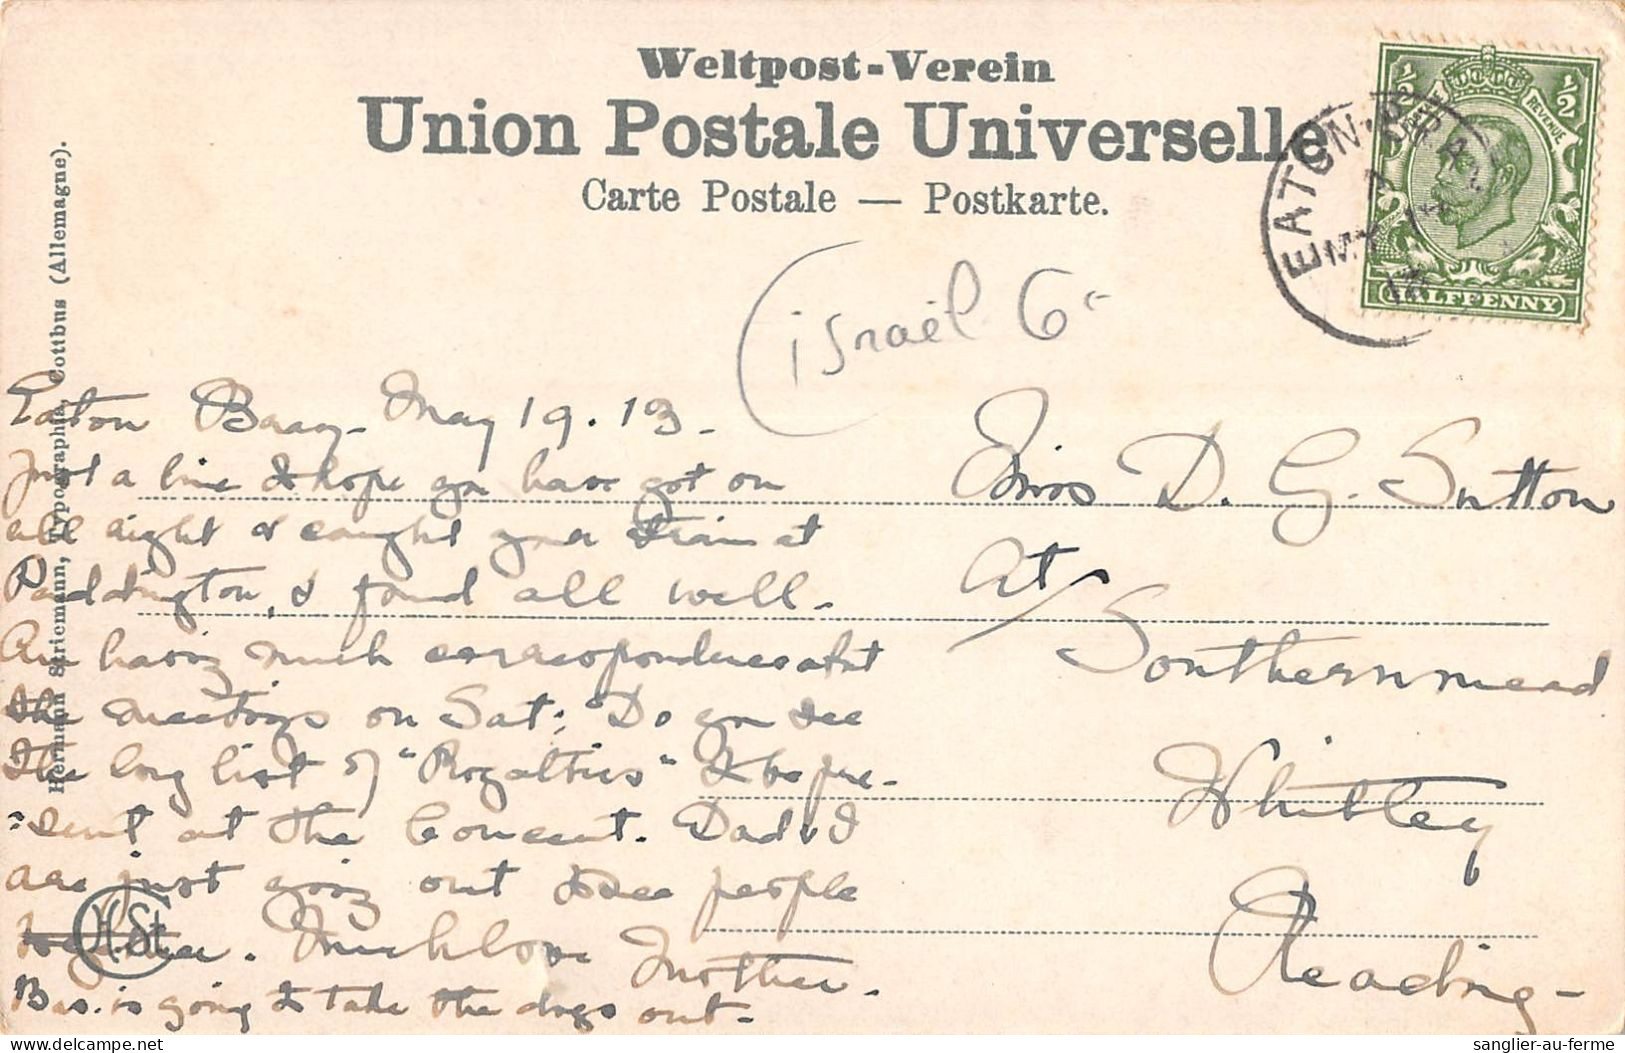 Weltpost-Verein
Union Postale Universelle
Carte Postale — Postkarte.
½ ½
REVENUE
HALFPENNY
EATON-BRAY
MY 19
13
Hermann Striemann, Typographia, Cottbus (Allemagne).
israël 6
Eaton Bray. May 19.13.
Just a line to hope you have got on
all right & caught your train at
Paddington, & found all well.
Am having much correspondence abt
the meetings on Sat: Do you see
the long list of "Royalties" to be pre-
sent at the Concert. Dad & I
are just going out to see people
together. Much love Mother.
Bas. is going to take the dogs out.
H.St
Miss D. G. Sutton
At
Southernmead
Whitley
Reading-
delcampe.net
sanglier-au-ferme